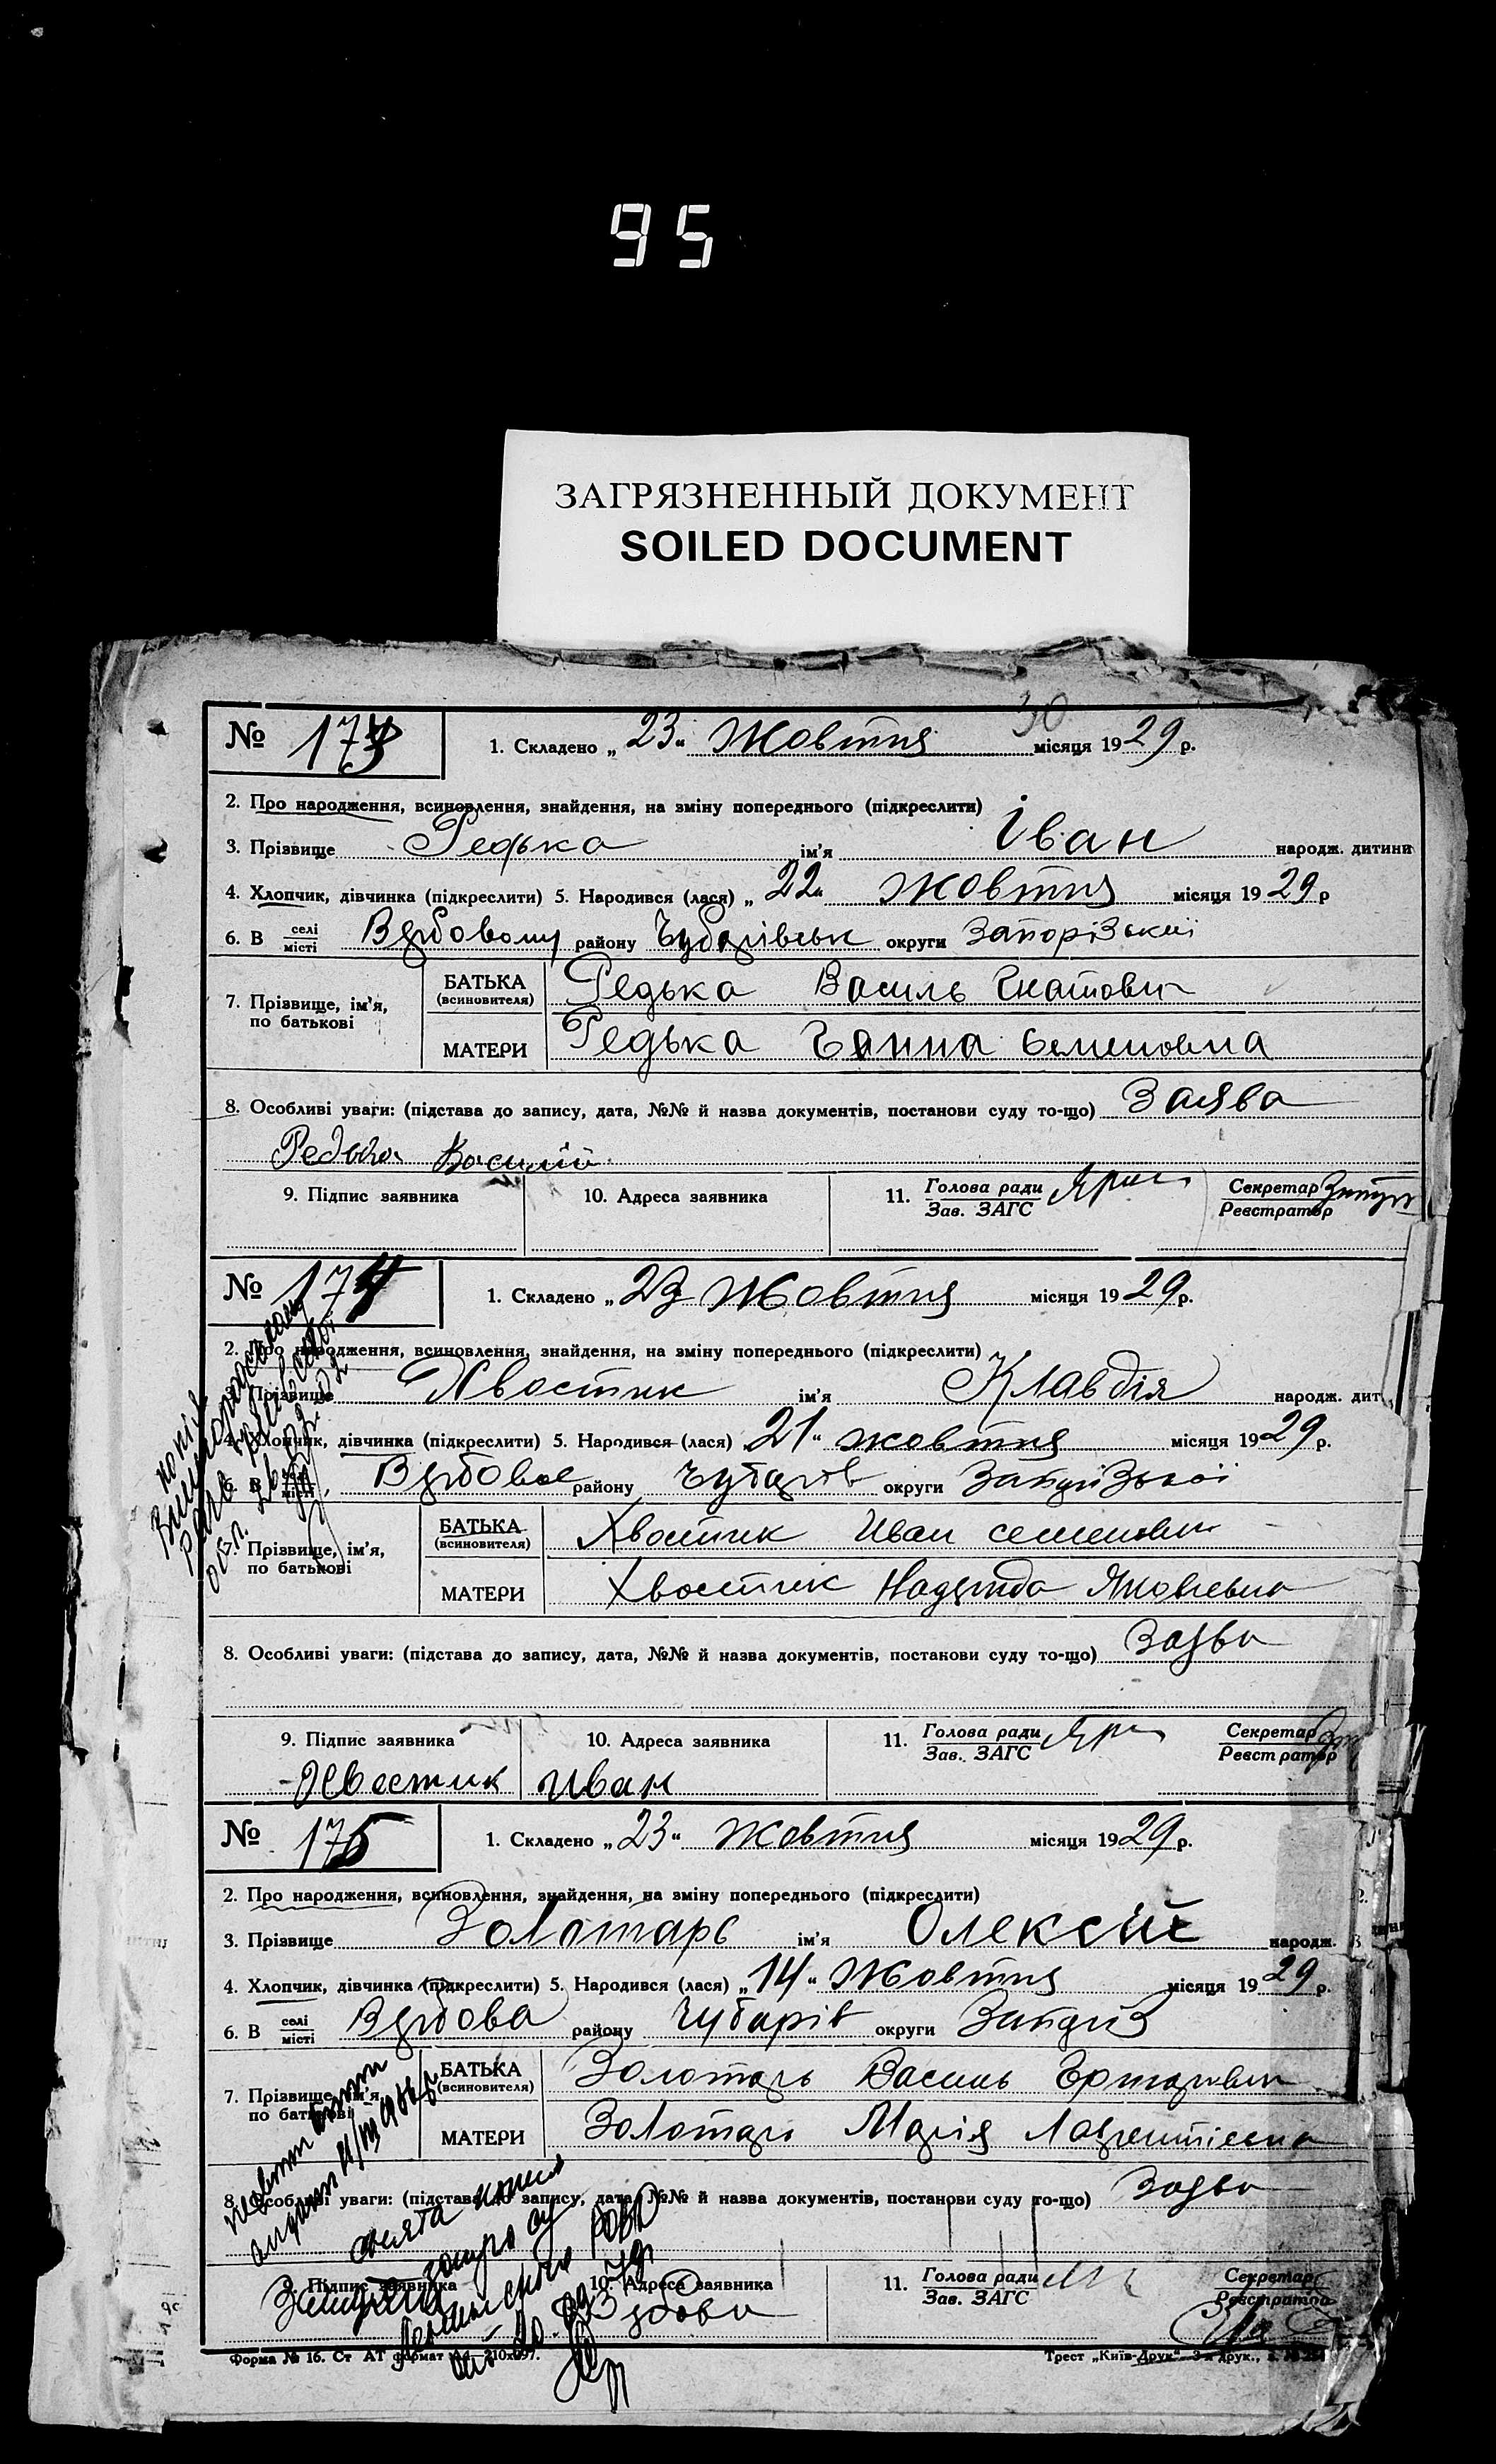 95
ЗАГРЯЗНЕННЫЙ ДОКУМЕНТ
SOILED DOCUMENT
30
№ 173 1. Складено „23“ Жовтня місяця 1929 р.
2. Про народження, всиновлення, знайдення, на зміну попереднього (підкреслити)
3. Прізвище Редька ім'я Іван народж. дитини
4. Хлопчик, дівчинка (підкреслити) 5. Народився (лася) „22“ Жовтня місяця 1929 р
6. В селі/місті Вербовому району Чубарівськ округи Запорізької
7. Прізвище, ім'я, по батькові
БАТЬКА (всиновителя) Редька Василь Гнатович
МАТЕРИ Редька Ганна Семеновна
8. Особливі уваги: (підстава до запису, дата, №№ й назва документів, постанови суду то-що) Заява
Редька Василій
9. Підпис заявника 10. Адреса заявника 11. Голова ради/Зав. ЗАГС Секретар/Реєстратор
№ 174 1. Складено „23 Жовтня місяця 1929 р.
2. Про народження, всиновлення, знайдення, на зміну попереднього (підкреслити)
3. Прізвище Хвостик ім'я Клавдія народж. дит
4. Хлопчик, дівчинка (підкреслити) 5. Народився (лася) 21“ жовтня місяця 1929 р.
6. В селі/місті Вербовое району Чубарів округи Запорізької
7. Прізвище, ім'я, по батькові
БАТЬКА (всиновителя) Хвостик Иван семенович
МАТЕРИ Хвостик Надежда Яковлевна
8. Особливі уваги: (підстава до запису, дата, №№ й назва документів, постанови суду то-що) Заява
9. Підпис заявника 10. Адреса заявника 11. Голова ради/Зав. ЗАГС Секретар/Реєстратор
Хвостик Иван
№ 175 1. Складено „23“ Жовтня місяця 1929 р.
2. Про народження, всиновлення, знайдення, на зміну попереднього (підкреслити)
3. Прізвище Золотарь ім'я Олексій народж.
4. Хлопчик, дівчинка (підкреслити) 5. Народився (лася) „14“ Жовтня місяця 1929 р.
6. В селі/місті Вербова району Чубарів округи Запоріз
7. Прізвище, ім'я, по батькові
БАТЬКА (всиновителя) Золотарь Василь
МАТЕРИ Золотарь Марія Лаврентієвна
8. Особливі уваги: (підстава до запису, дата, №№ й назва документів, постанови суду то-що) Заява
снята копия
9. Підпис заявника 10. Адреса заявника 11. Голова ради/Зав. ЗАГС Секретар/Реєстратор
Вербова
Форма № 16. Ст АТ формат А4—210х297. Трест „Київ-Друк“ 3-я друк.,